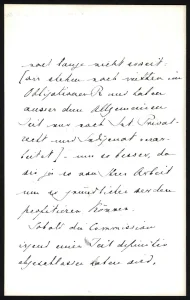 noch lange nicht soweit
(wir stehen noch mitten im
Obligationen R und haben
ausser dem Allgemeinen
Teil nur noch
recht und
um so besser, da
Sie so aus Ihrer Arbeit
um so gründlicher werden
profitieren können.
Sobald die Commission
irgend einen Teil definitiv
abgeschlossen haben wird,